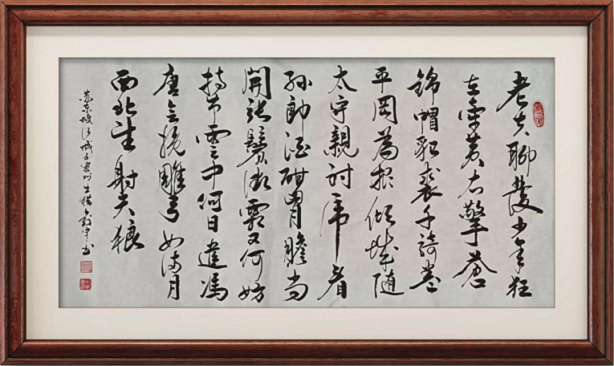 老夫聊發少年狂
左牽黃右擎蒼
錦帽貂裘千騎卷
平岡為報傾城隨
太守親射虎看
孫郎酒酣胸膽尚
開張鬢微霜又何妨
持節雲中何日遣馮
唐會挽雕弓如滿月
西北望射天狼
蘇東坡江城子密州出獵 書